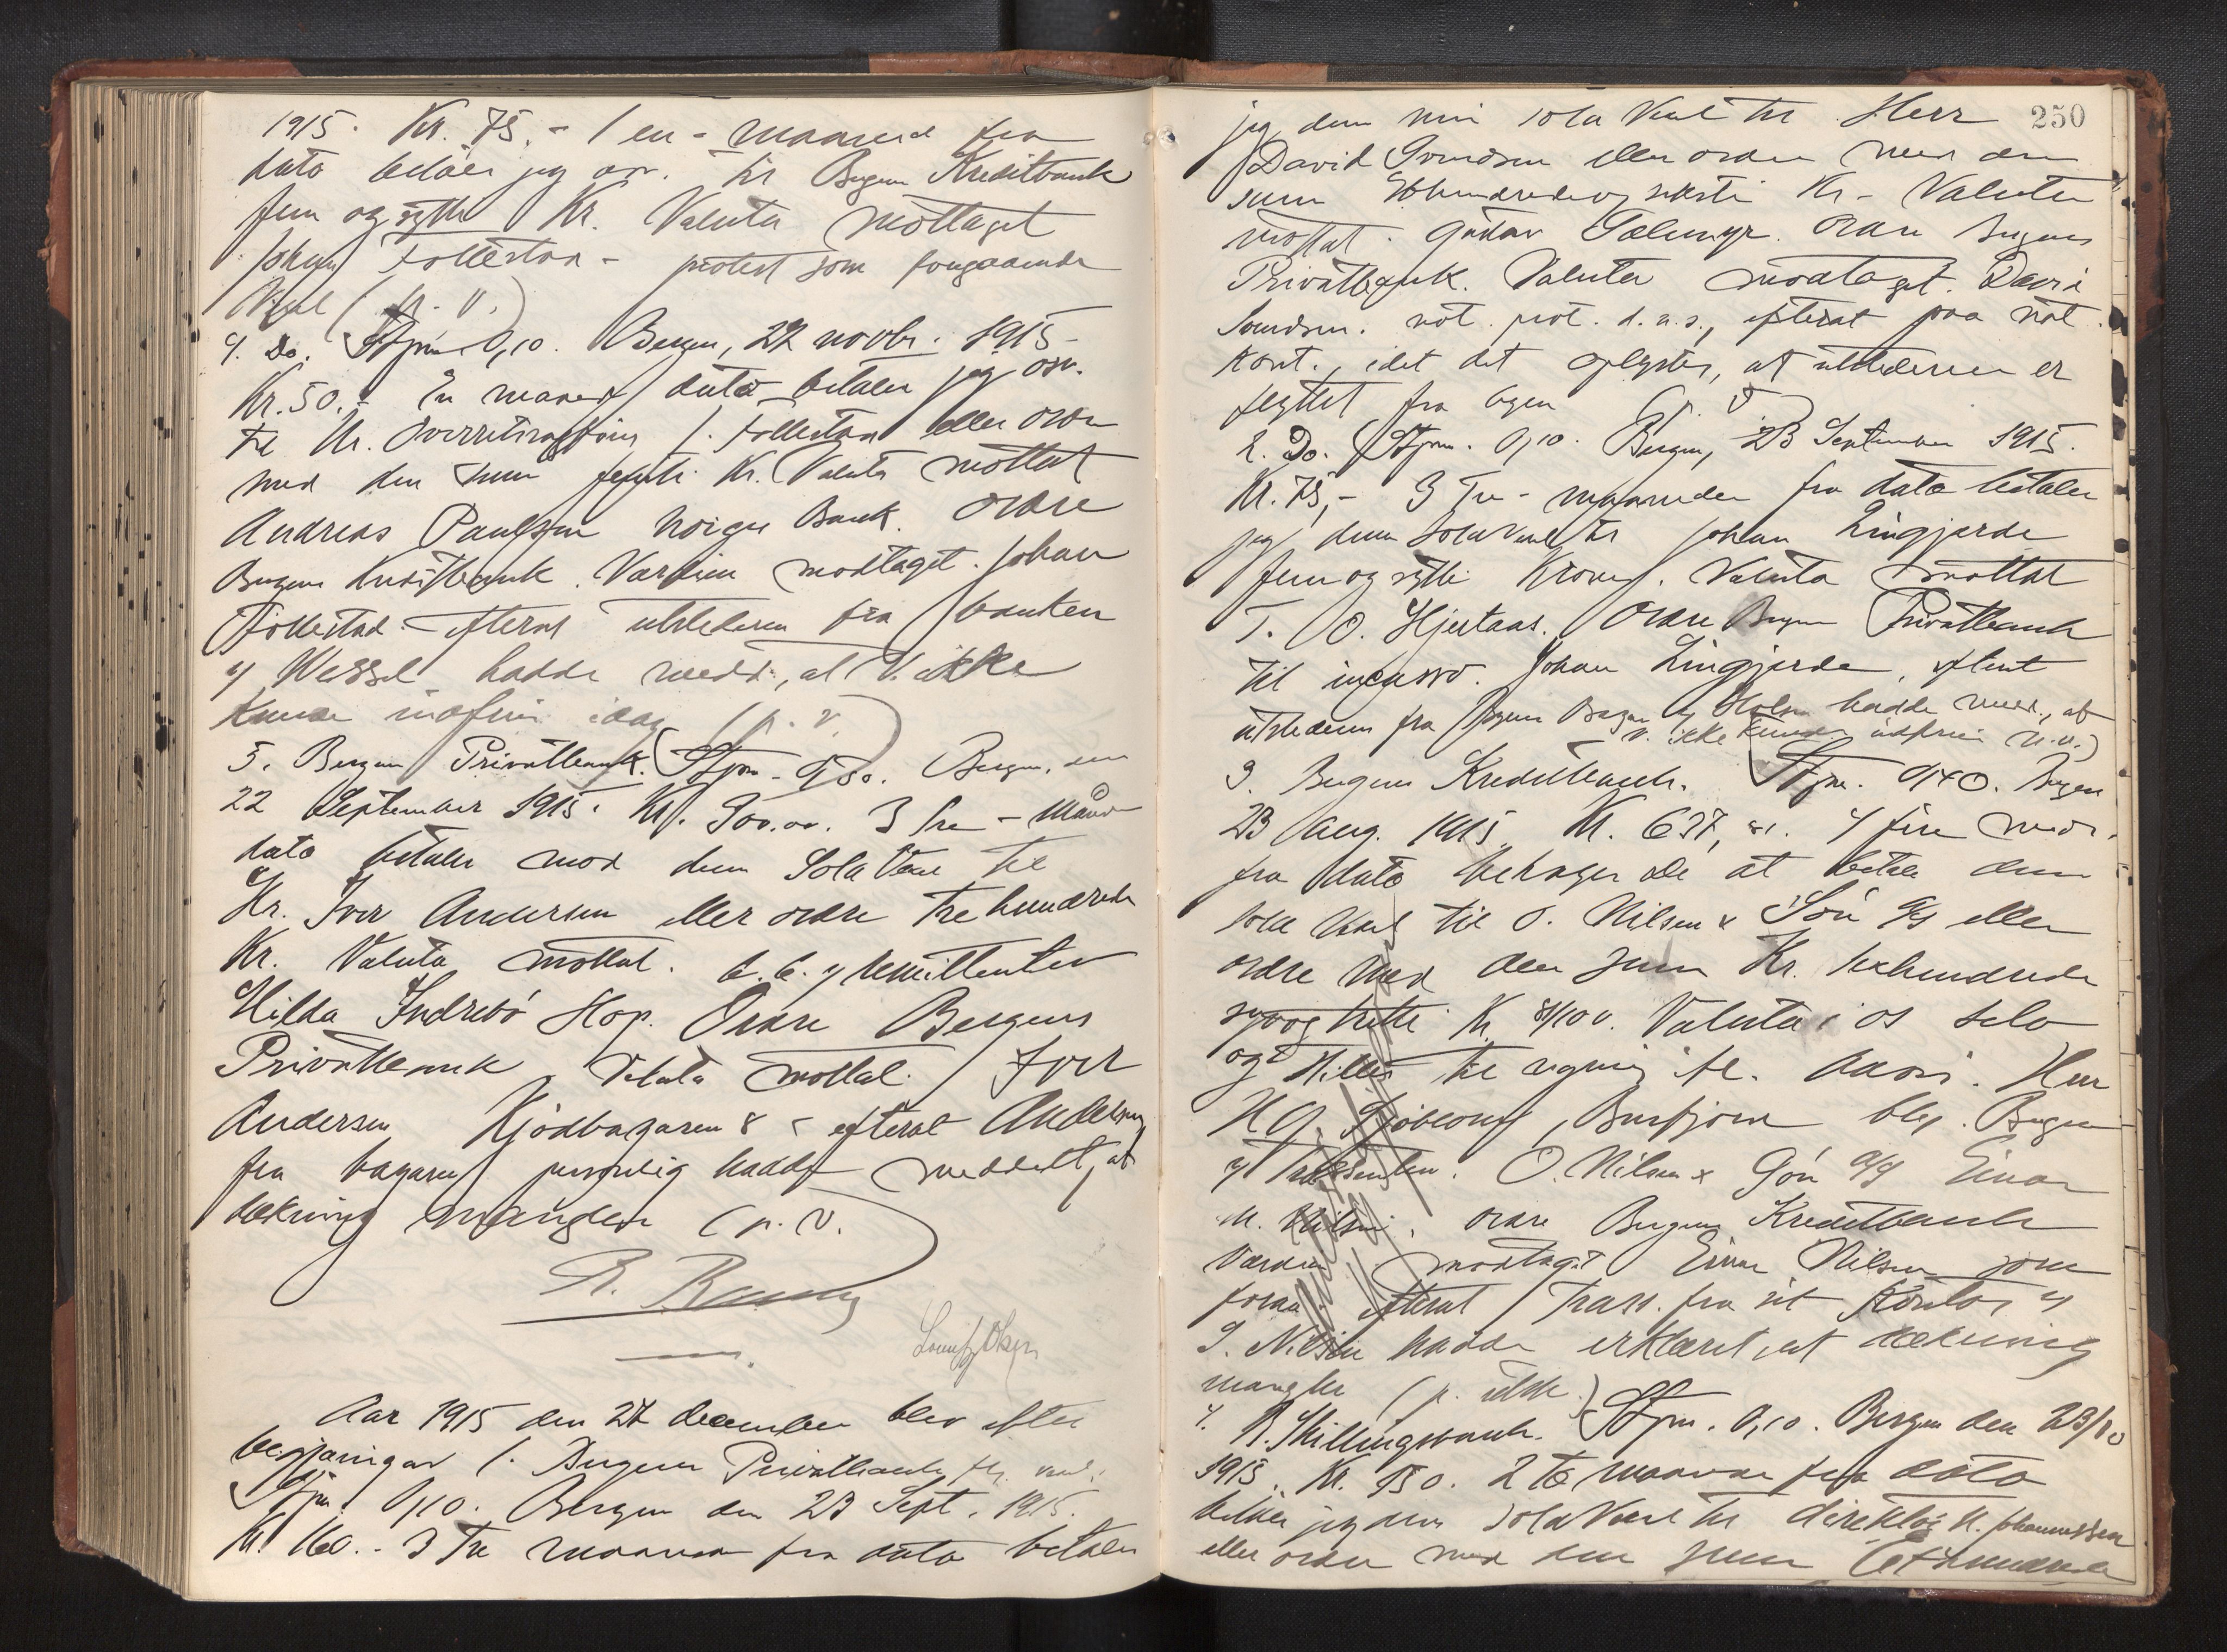 1915. Kr. 75.- 1 en - maaned fra
dato betaler jeg osv. til Bergens Kreditbank
fem og sytti Kr. Valuta mottaget
Johan Follestad - protest som foregaaende
Veksel (p. v.)
4. Do. Stpm 0,10. Bergen, 27 novbr. 1915
Kr. 50.- En maaned dato betaler jeg osv.
til Hr. J. Follestad eller ordre
med den sum femti Kr. Valuta mottat
Andreas Paulsen Norges Bank. Ordre
Bergens Kreditbank. Værdien modtaget. Johan
Follestad - efterat utstederen fra banken
v/ Wessel hadde medd., at V. ikke
kunde indfries idag (p. v.)
5. Bergens Privatbank. Stpm. 0,30. Bergen, den
22 September 1915. Kr. 300.00. 3 tre - maaneder
dato betaler mod denne Sola Veksel til
Hr. Iver Andersen eller ordre tre hundrede
Kr. Valuta mottat. b. b. v/ remittenten
Hilda Indrebö Hop. Ordre Bergens
Privatbank Valuta mottat. Iver
Andersen Kjödbasaren 8 - efterat Andersen
fra basaren personlig hadde meddelt, at
dekning mangler (p. v.
Aar 1915 den 27 december blev efter
begjæring av 1. Bergens Privatbank
Stpm 0,10. Bergen den 23 Sept. 1915.
Kr. 160.- 3 Tre maaneder fra dato betaler
250
jeg denne min sola Veksel til Herr
David Svendsen eller ordre med den
sum Ethundredeog seksti Kr - Valuta
mottat. Gustav ordre Bergens
Privatbank. Valuta modtaget. David
Svendsen. not. prot. d. n. s., efterat paa not.
kont., idet det oplystes, at utstederen er
flyttet fra byen (p. v.
2. Do. Stpm. 0,10. Bergen, 23 September 1915.
Kr. 75,- 3 Tre - maaneder fra dato betaler
jeg denne sola Veksel til Johan Lingjærde
fem og sytti Kroner. Valuta mottat
T. O. Hjertaas. Ordre Bergens Privatbank
til incasso. Johan Lingjærde, efterat
utstederen fra v/ Holm hadde medd., at
v. ikke kunde indfries (p. v.)
3. Bergens Kreditbank. Stpm. 0,40. Bergen
23 Aug. 1915 Kr. 637,81. 4 fire mdr.
fra dato behager De at betale denne
sola Veksel til O. Nilsen & Sön A/S eller
ordre med den sum Kr. sekshundrede
syvog tretti Kr 81/100. Valuta i os selv
og stilles til regning ifl. advis. Herr
H. G. Bergen
v/ O. Nilsen & Sön A/S Einar
M. Nilsen, ordre Bergens Kreditbank
Værdien modtaget Einar Nilsen som
foran. efterat Trass. fra sit Kontor v/
hadde erklært, at dekning
mangler (p. utst.)
4. B. Skillingsbank. Stpm. 0,10. Bergen den 23/10
1915. Kr. 150. 2 to maaneder fra dato
betaler jeg denne sola Veksel til direktör H. Johannessen
eller ordre med den sum Et hundrede